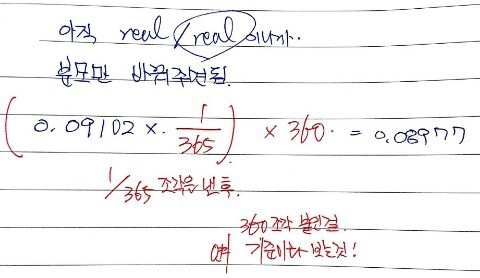 아직 real / real 이니까.
분모만 바꿔주면됨.
( 0.09102 × 1/365 ) × 360. = 0.08977
1/365 조각을 낸 후.
360조각 붙인걸
기준이다 보는것!